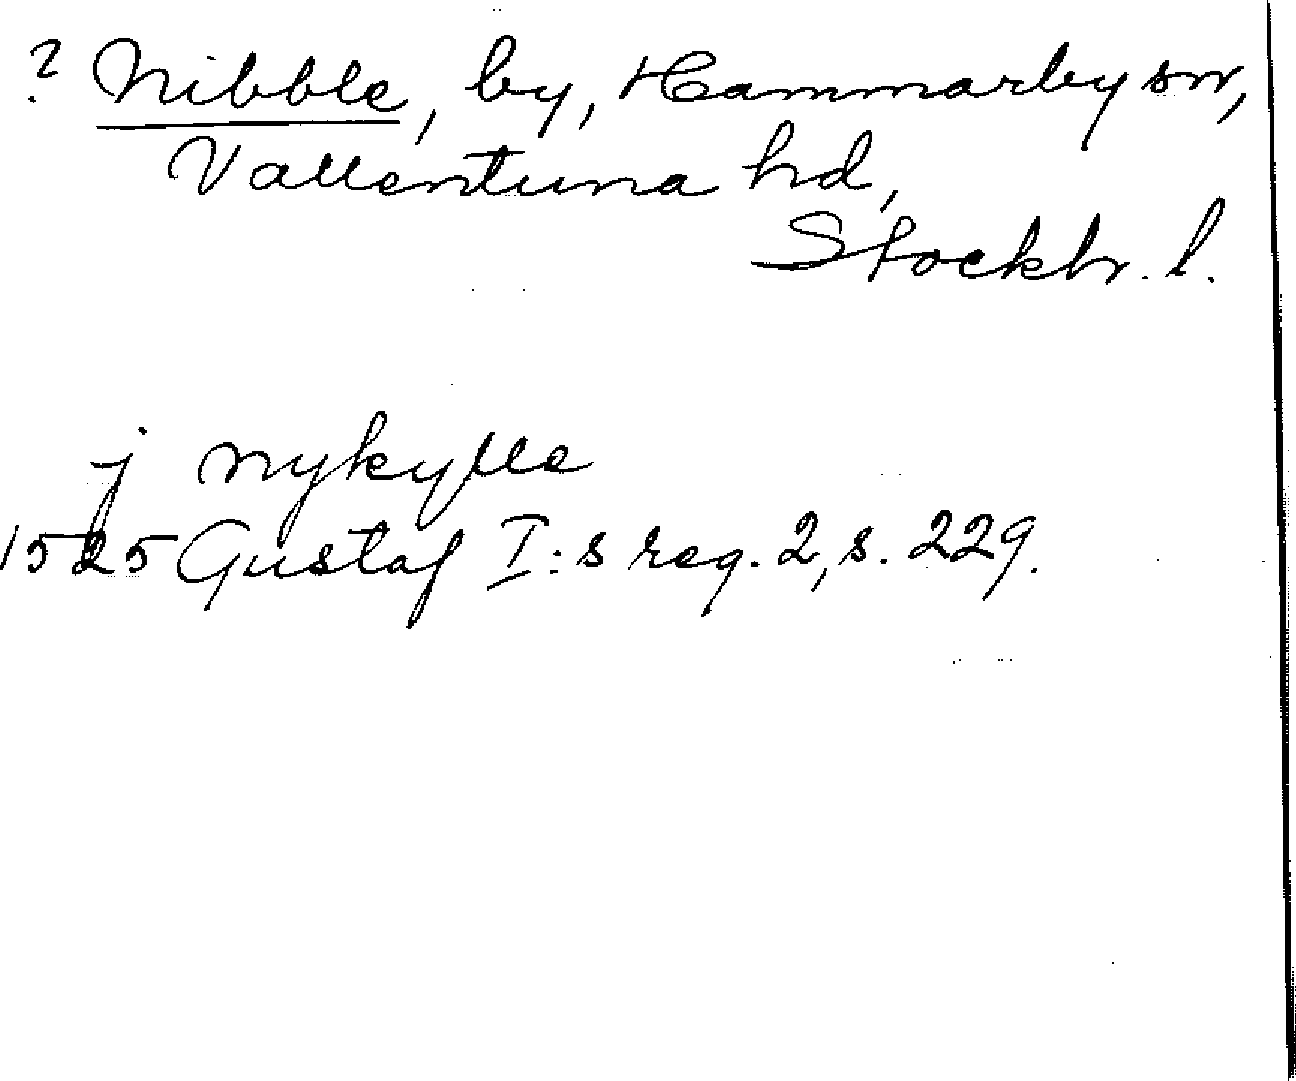 ? Nibble, by, Hammarby sn,
Vallentuna hd,
Stockh. l.
j nykylle
1525 Gustaf I:s reg. 2, s. 229.